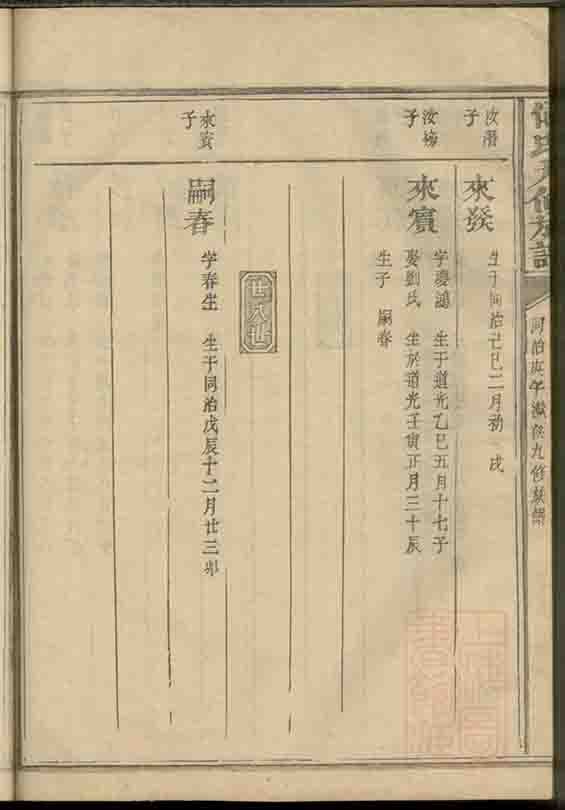 氏九修族譜
同治庚午 九修族譜
汝潛子
來發
生于同治己巳二月初 戌
汝梅子
來賓
字慶鴻 生于道光乙巳五月十七子
娶劉氏 生於道光壬寅正月三十辰
生子 嗣春
廿八世
來賓子
嗣春
字春生 生于同治戊辰十二月廿三卯